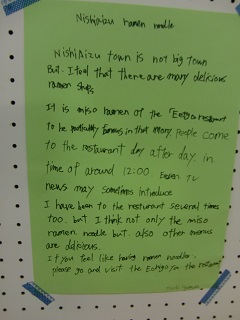 Nishiaizu ramen noodle
NishiAizu town is not big town
But. I feel that there are many delicious
ramen shops.
It is miso ramen of the "Echigoya restaurant
to be particularly famous in that many people come
to the restaurant day after day in
time of around 12:00 TV
news may sometimes introduce
I have been to the resturant several times
too. but I think not only the miso
ramen noodle but also other menus
are delicious.
If you feel like having ramen noodles,
please go and visit the Echigoya the